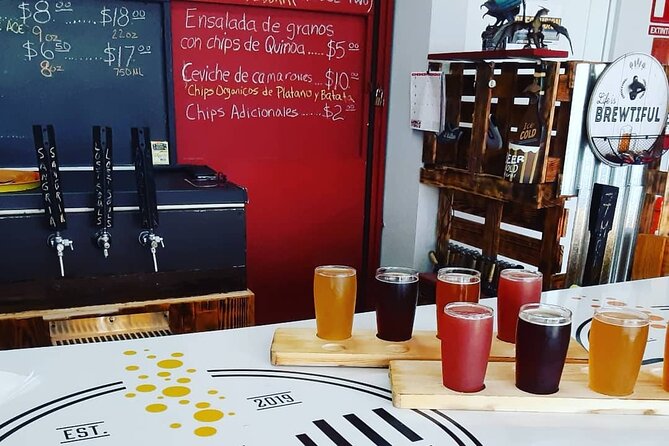 $8.00
9oz
$18.00
22oz
$6.50
8oz
$17.00
750ML
Ensalada de granos
con chips de Quinoa..... $5.00
Ceviche de camarones..... $10.00
Chips Organicos de Platano y Batata
Chips Adicionales..... $2.00
SANGRI
LOST SOULS
EXTINT
Life is
BREWTIFUL
ICE
COLD
BEER
EST.
2019